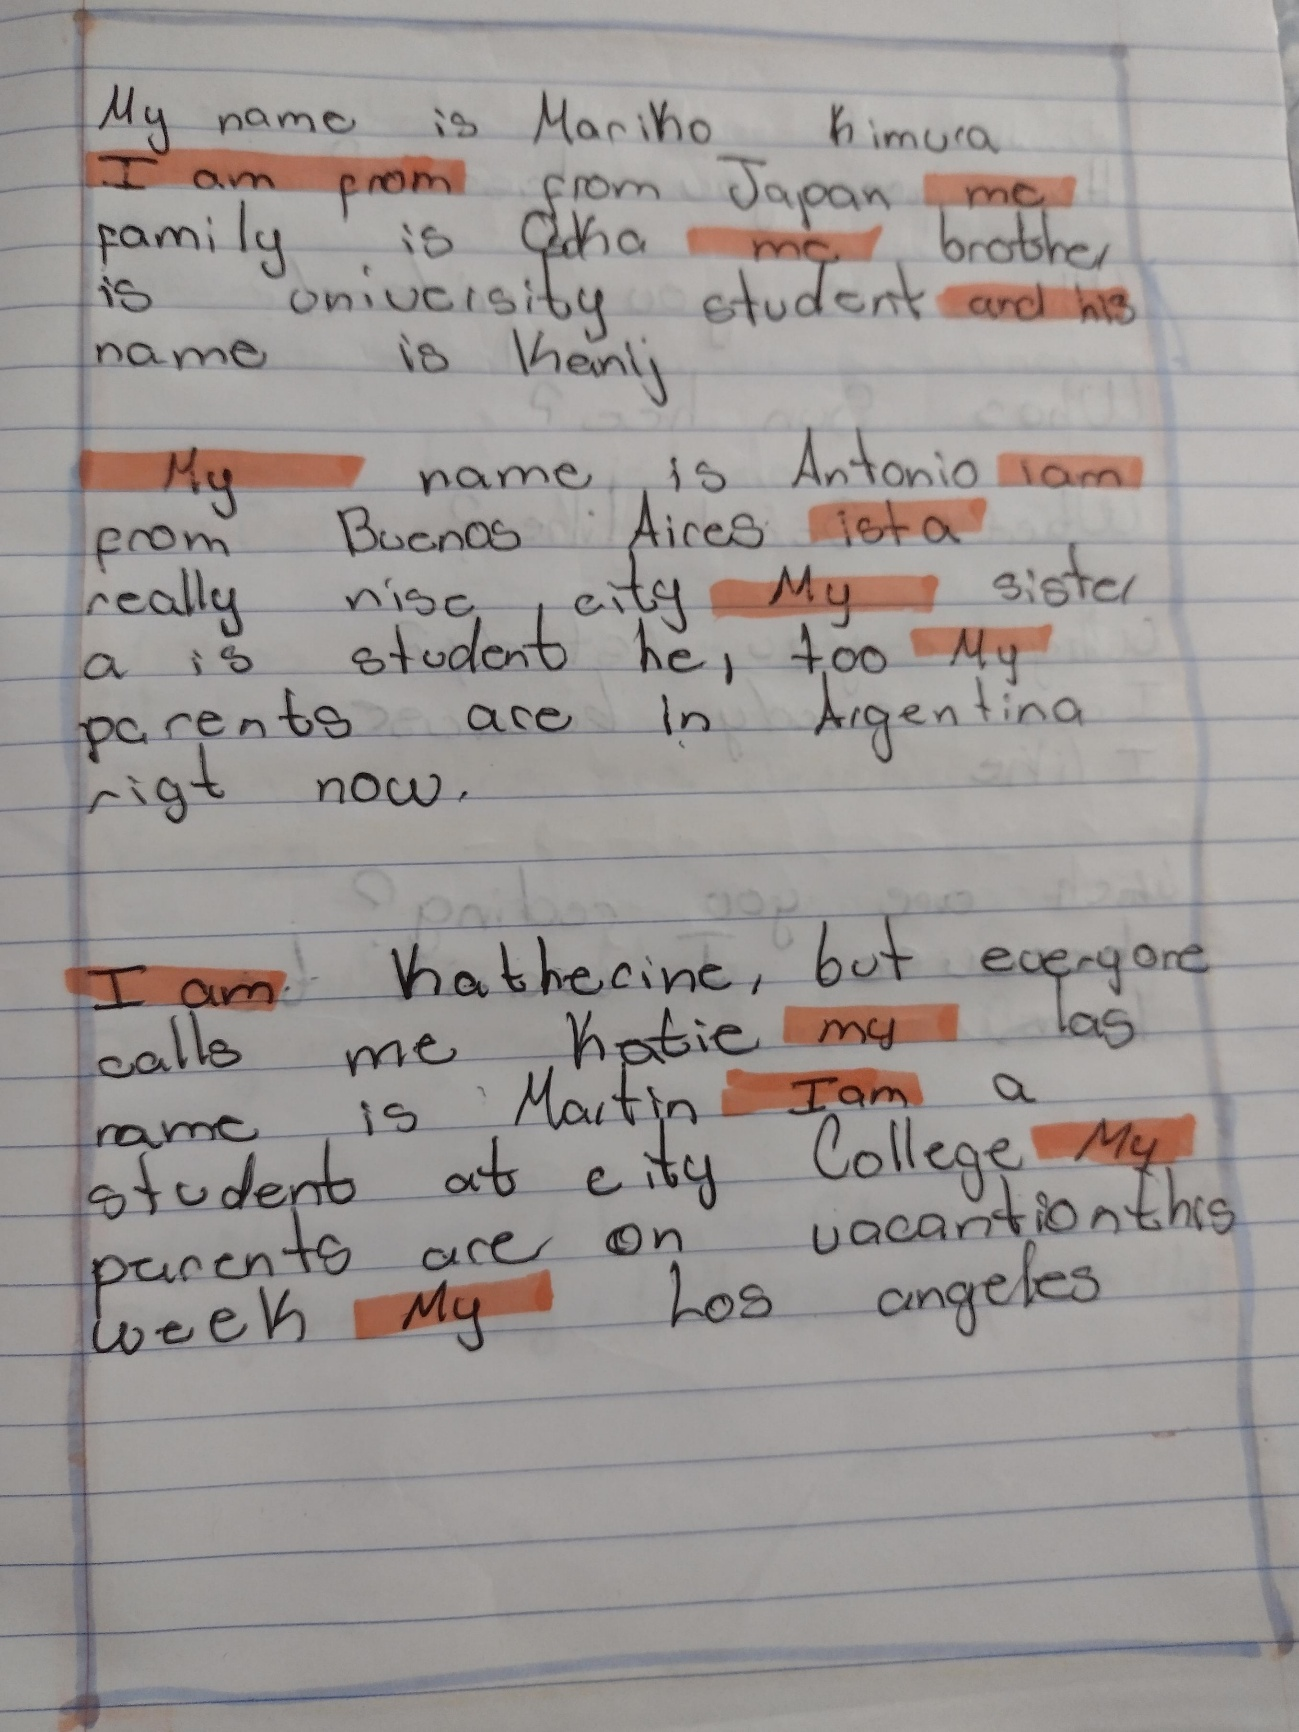 My name is Mariko Kimura
I am from from Japan me
family is Osha me brotsher
is university student and his
name is Kenij
My name is Antonio iam
from Buenos Aires ist a
really nise city My sister
a is student he, too My
parents are in Argentina
rigt now.
I am Katherine, but everyone
calls me Katie my las
name is Martin Iam a
student at city College My
parents are on vacantionthis
week My Los angeles